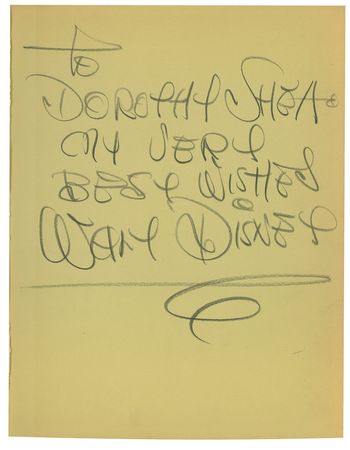 To
Dorothy Shea
My Very
Best Wishes
Walt Disney